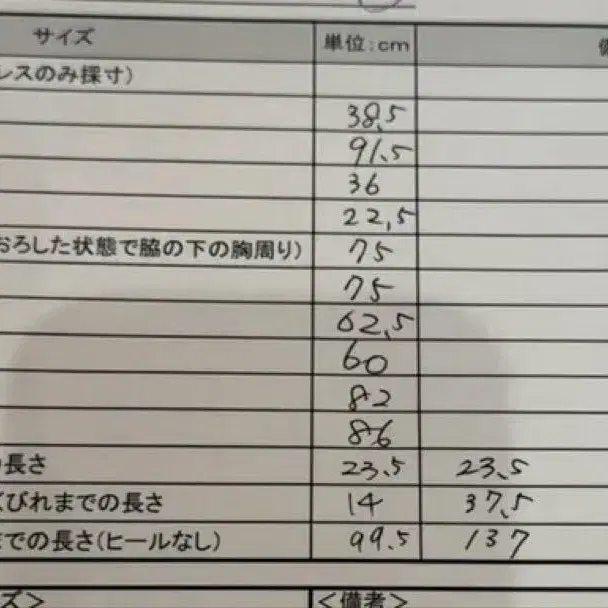 サイズ 単位:cm
レスのみ採寸)
38.5
91.5
36
22.5
おろした状態で脇の下の胸周り) 75
75
62.5
60
82
86
の長さ 23.5 23.5
くびれまでの長さ 14 37.5
までの長さ(ヒールなし) 99.5 137
ズ> <備考>